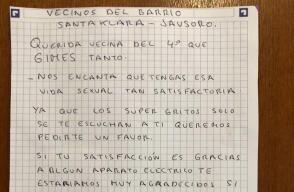 VECINOS DEL BARRIO
SANTAKLARA - JAUSORO.
QUERIDA VECINA DEL 4º QUE
GIMES TANTO.
- NOS ENCANTA QUE TENGAS ESA
VIDA SEXUAL TAN SATISFACTORIA.
YA QUE LOS SUPER GRITOS SOLO
SE TE ESCUCHAN A TI QUEREMOS
PEDIRTE UN FAVOR.
SI TU SATISFACCIÓN ES GRACIAS
A ALGUN APARATO ELECTRICO TE
ESTARIAMOS MUY AGRADECIDOS SI